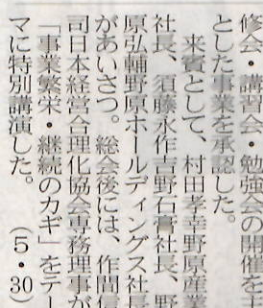 修会・講習会・勉強会の開催を主
とした事業を承認した。
来賓として、村田孝幸野原産業
社長、須藤永作吉野石膏社長、野
原弘輔野原ホールディングス社長
があいさつ。総会後には、作間信
司日本経営合理化協会専務理事が
「事業繁栄・継続のカギ」をテー
マに特別講演した。（5・30）